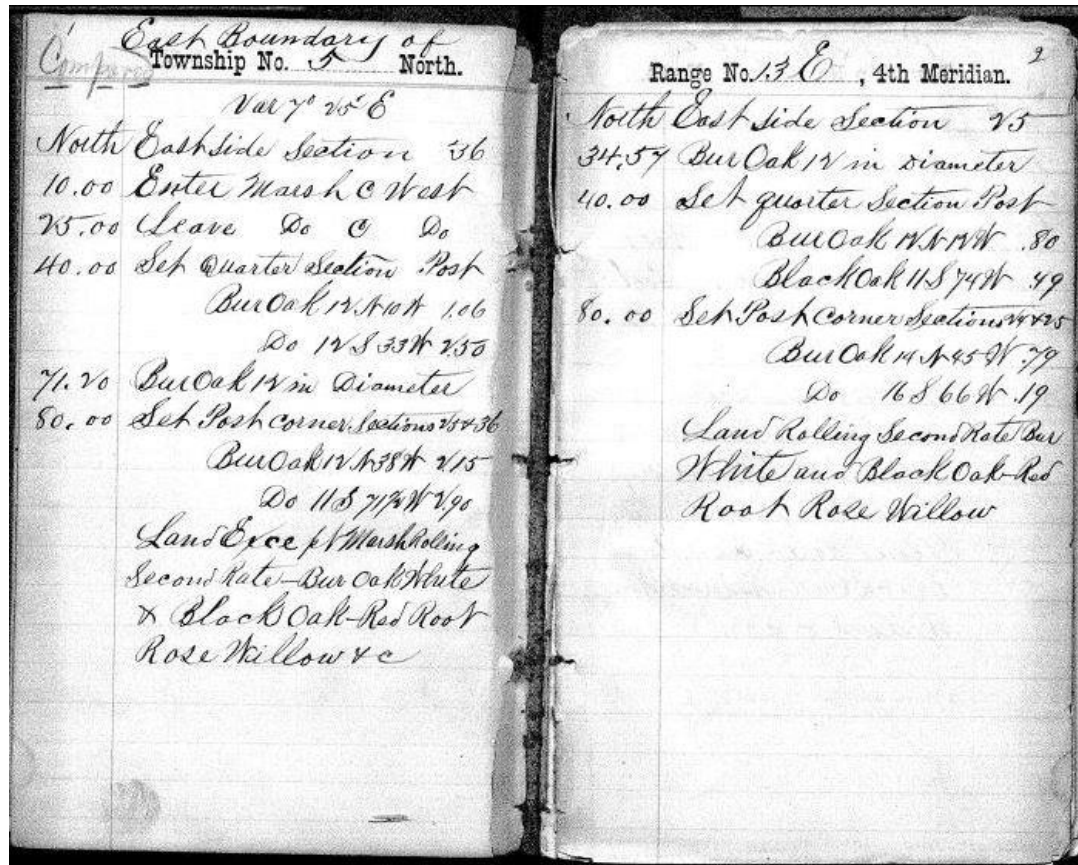 East Boundary of
Compared Township No. 5 North.
Var 7° 25' E
North East Side Section 36
10.00 Enter Marsh C West
25.00 Leave Do C Do
40.00 Set Quarter Section Post
Bur Oak 12 N 10 W 1.06
Do 12 S 33 W 2.50
71.20 Bur Oak 12 in Diameter
80.00 Set Post corner Sections 25 & 36
Bur Oak 12 N 38 W 2.15
Do 11 S 71½ W 2.90
Land Except Marsh Rolling
Second Rate - Bur Oak White
& Black Oak - Red Root
Rose Willow & c
2
Range No. 13 E , 4th Meridian.
North East Side Section 25
34.57 Bur Oak 12 in Diameter
40.00 Set quarter Section Post
Bur Oak 12 N 12 W .80
Black Oak 11 S 74 W .49
80.00 Set Post Corner Sections 24 & 25
Bur Oak 14 N 45 W .79
Do 16 S 66 W .19
Land Rolling Second Rate Bur
White and Black Oak - Red
Root Rose Willow